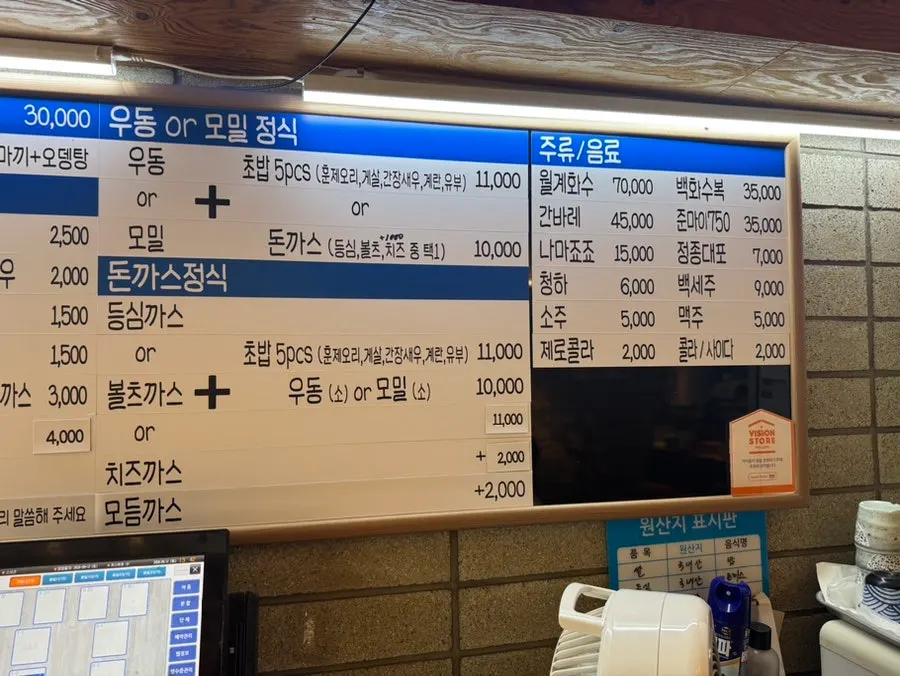 30,000
마끼+오뎅탕
2,500
우 2,000
1,500
1,500
까스 3,000
4,000
리 말씀해 주세요
우동 or 모밀 정식
우동 초밥 5pcs (훈제오리,게살,간장새우,계란,유부) 11,000
or + or
+1000
모밀 돈까스 (등심,볼츠,치즈 중 택1) 10,000
돈까스정식
등심까스
or 초밥 5pcs (훈제오리,게살,간장새우,계란,유부) 11,000
볼츠까스 + 우동 (소) or 모밀 (소) 10,000
11,000
or
+ 2,000
치즈까스
+2,000
모듬까스
주류/음료
월계화수 70,000 백화수복 35,000
간바레 45,000 준마이750 35,000
나마죠죠 15,000 정종대포 7,000
청하 6,000 백세주 9,000
소주 5,000 맥주 5,000
제로콜라 2,000 콜라/사이다 2,000
VISION
STORE
원산지 표시판
품목 원산지 음식명
쌀 국내산 밥
국내산